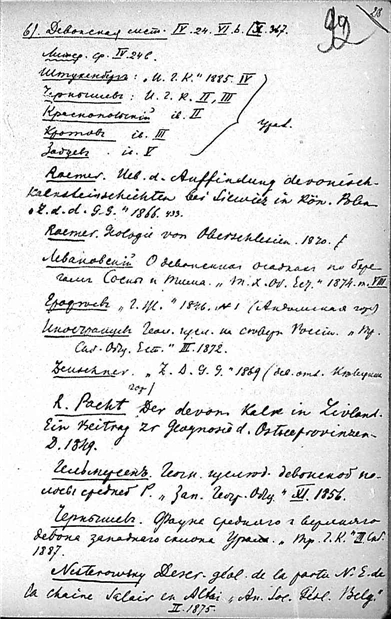 28
92
6). Девонская сист. IV.24. VI.6. X.367.
Литер. ср. IV.246.
Штукенберг: „И. Г. К." 1885. IV
Чернышев: И. Г. К. II, III
Краснопольский ib. II
Кротов ib. III
Зайцев. ib. V
Урал.
Roemer. Ueb. d. Auffindung devonisch.
Kalksteinschichten bei Siewierz in Kön. Polen
„Z. d. d. G. G." 1866. 433.
Roemer. Geologie von Oberschlesien. 1870.
Леваковский О девонских осадках по бере-
гам Сосны и „Тр. Х. Об. Ест." 1874. т. VIII
Ерофеев „Г. Ж." 1846. №1 (
Иностранцев Геол. иссл. на севере России. „Тр.
Общ. Ест." III. 1872.
Zeuschner. „Z. D. G. G." 1869 (дев. отл.
гор)
R. Pacht Der devon. Kalk in Livland.
Ein Beitrag zr Geognosie d. Ostseeprovinzen
D. 1849.
Гельмерсенъ. Геогн. исслед. девонской по-
лосы средней Р. „Зап. Геогр. Общ." XI. 1856.
Чернышев. Фауна среднего и верхнего
девона западного склона Урала. „Тр. Г. К." III
1887.
Nesterowsky Descr. géol. de la partie N. E. de
la chaine Salair in Altai „An. Soc. Géol. Belg."
II. 1875.